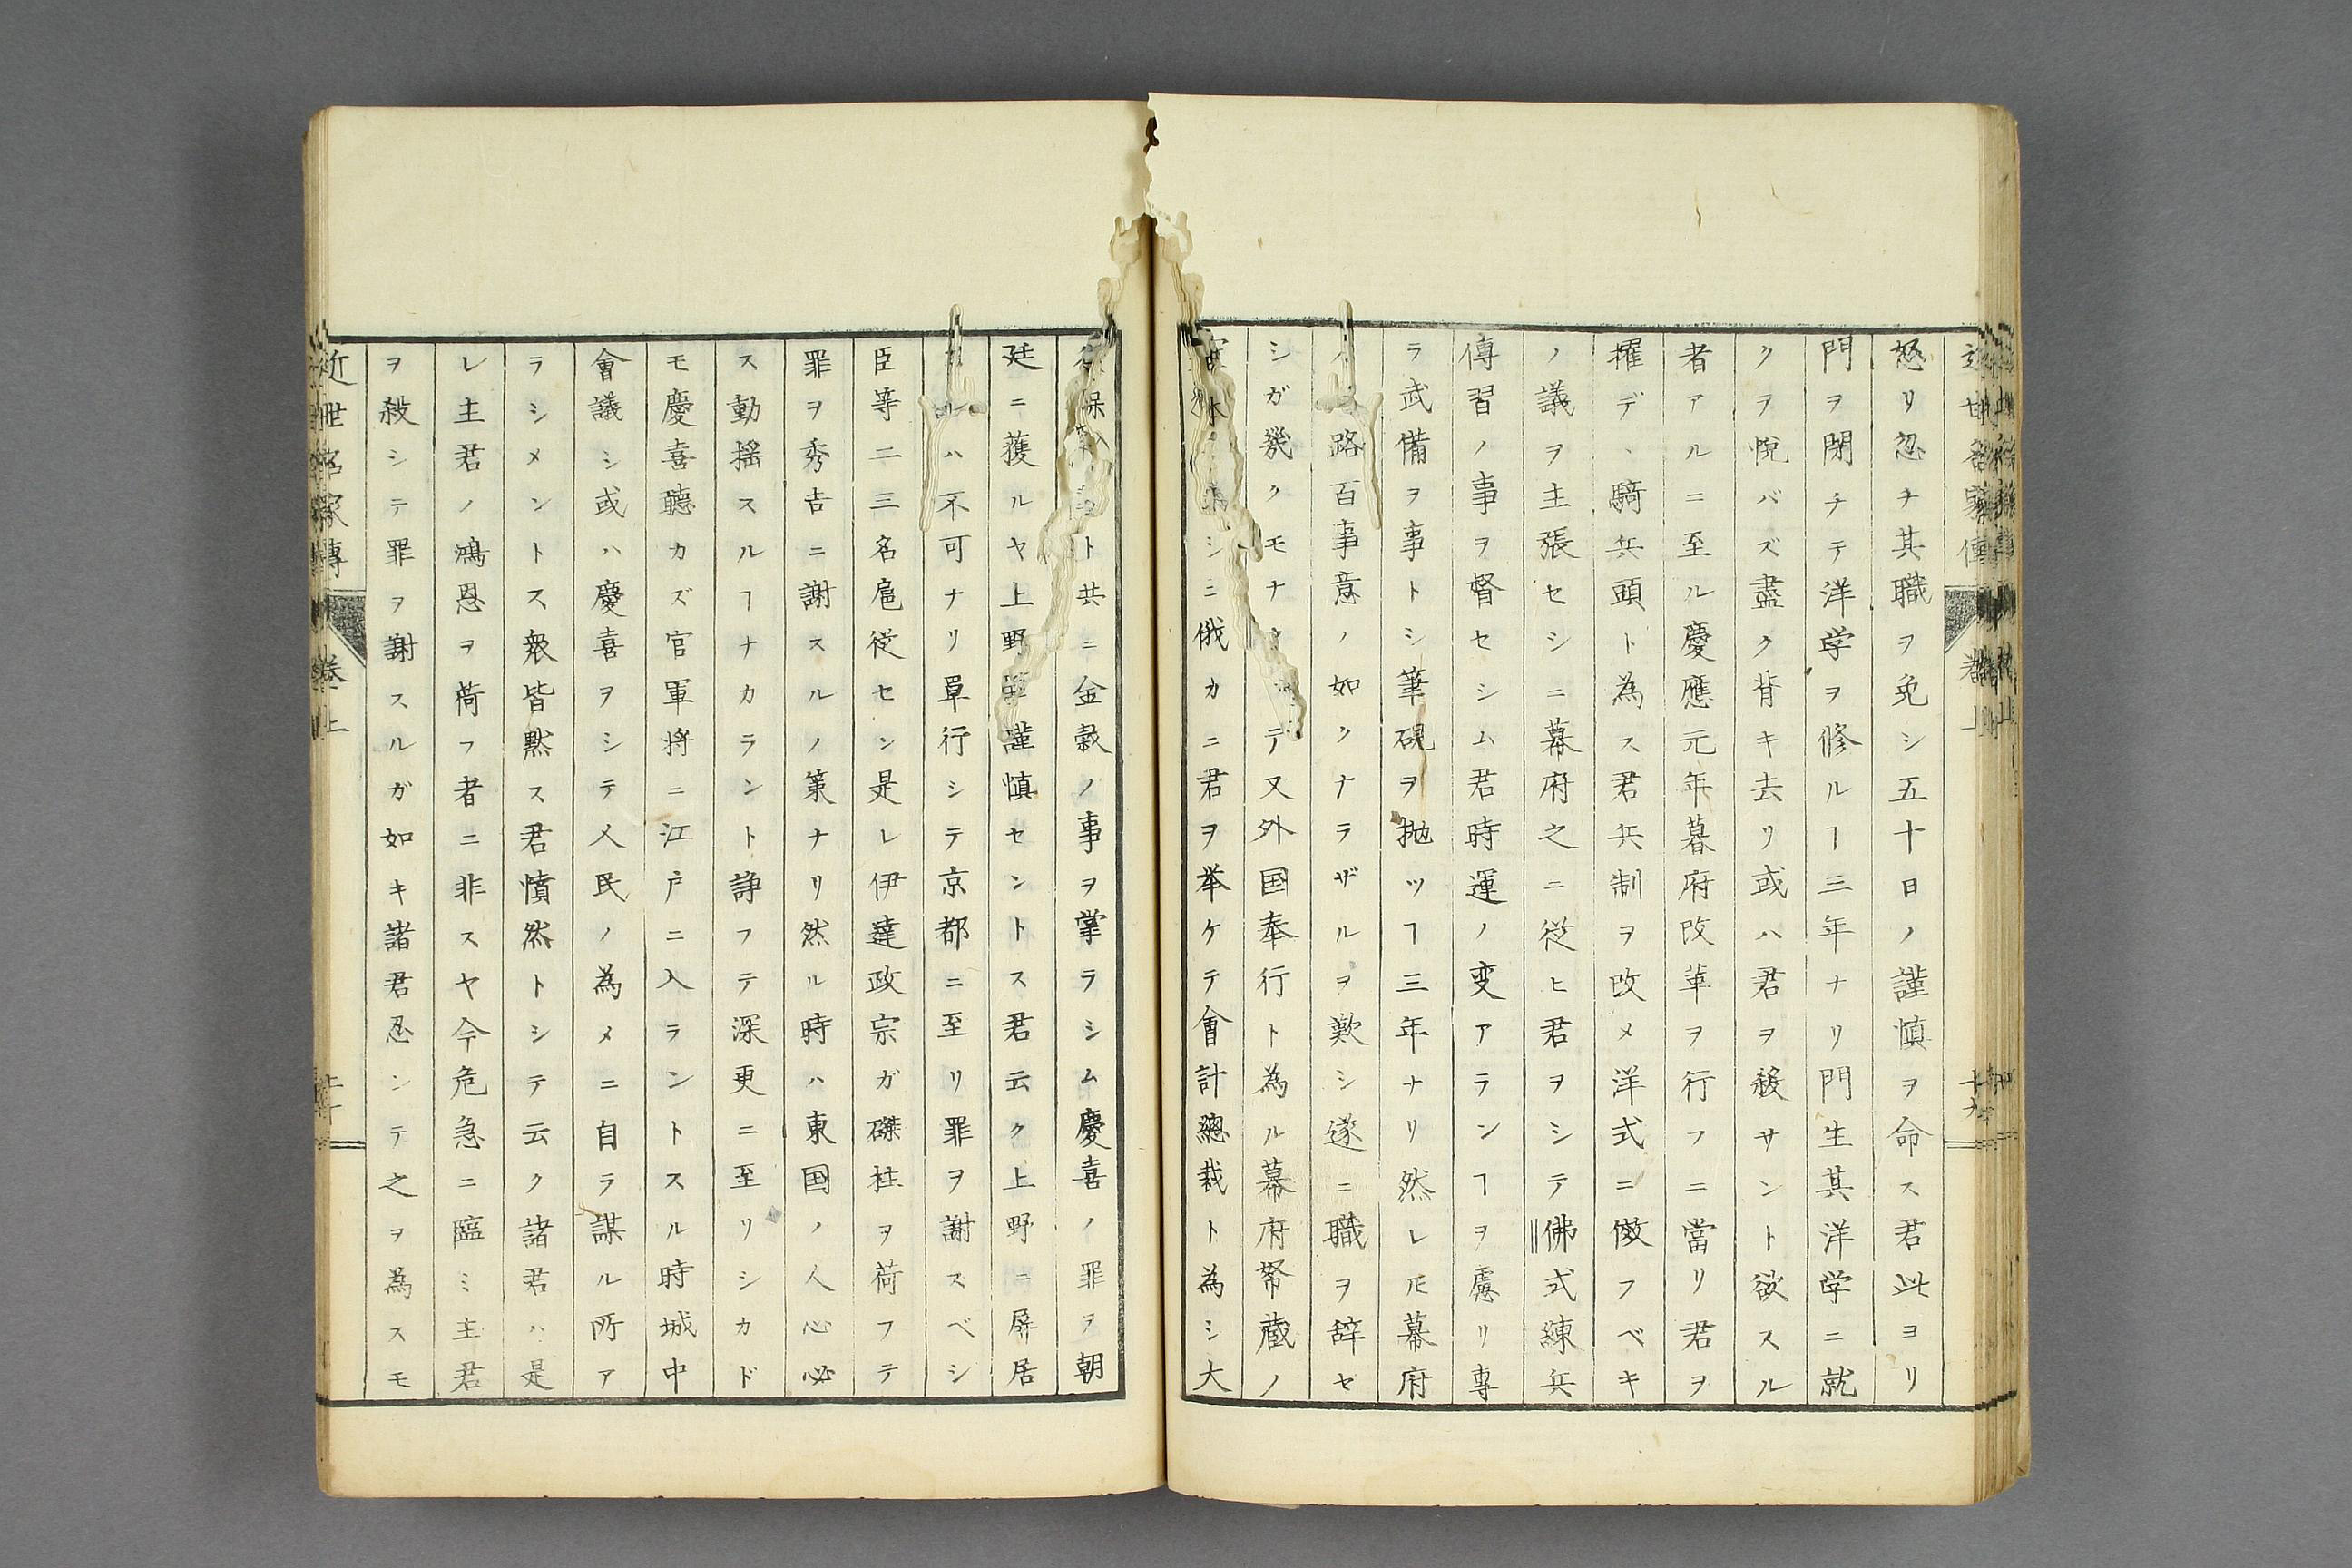 近世名家傳 卷上 十九
怒リ忽チ其職ヲ免シ五十日ノ謹慎ヲ命ス君此ヨリ
門ヲ閉チテ洋学ヲ修ルヿ三年ナリ門生其洋学ニ就
クヲ悅バズ盡ク背キ去リ或ハ君ヲ殺サント欲スル
者アルニ至ル慶應元年暮府改革ヲ行フニ當リ君ヲ
擢デヽ騎兵頭ト為ス君兵制ヲ改メ洋式ニ傚フベキ
ノ議ヲ主張セシニ幕府之ニ従ヒ君ヲシテ佛式練兵
傳習ノ事ヲ督セシム君時運ノ変アランヿヲ慮リ專
ラ武備ヲ事トシ筆硯ヲ抛ツヿ三年ナリ然レ𪜈幕府
路百事意ノ如クナラザルヲ歎シ遂ニ職ヲ辞セ
シガ幾クモナクシテ又外国奉行ト為ル幕府帑蔵ノ
シ三俄カニ君ヲ挙ケテ會計總裁ト為シ大
ト共ニ金穀ノ事ヲ掌ラシム慶喜ノ罪ヲ朝
廷ニ獲ルヤ上野ニ謹慎セントス君云ク上野ニ屏居
ルハ不可ナリ單行シテ京都ニ至リ罪ヲ謝スベシ
臣等二三名扈従セン是レ伊達政宗ガ磔柱ヲ荷フテ
罪ヲ秀吉ニ謝スルノ策ナリ然ル時ハ東国ノ人心必
ス動揺スルヿナカラント諍フテ深更ニ至リシカド
モ慶喜聽カズ官軍将ニ江戸ニ入ラントスル時城中
會議シ或ハ慶喜ヲシテ人民ノ為メニ自ラ謀ル所ア
ラシメントス衆皆黙ス君憤然トシテ云ク諸君ハ是
レ主君ノ鴻恩ヲ荷フ者ニ非スヤ今危急ニ臨ミ主君
ヲ殺シテ罪ヲ謝スルガ如キ諸君忍ンテ之ヲ為スモ
近世名家傳 卷上